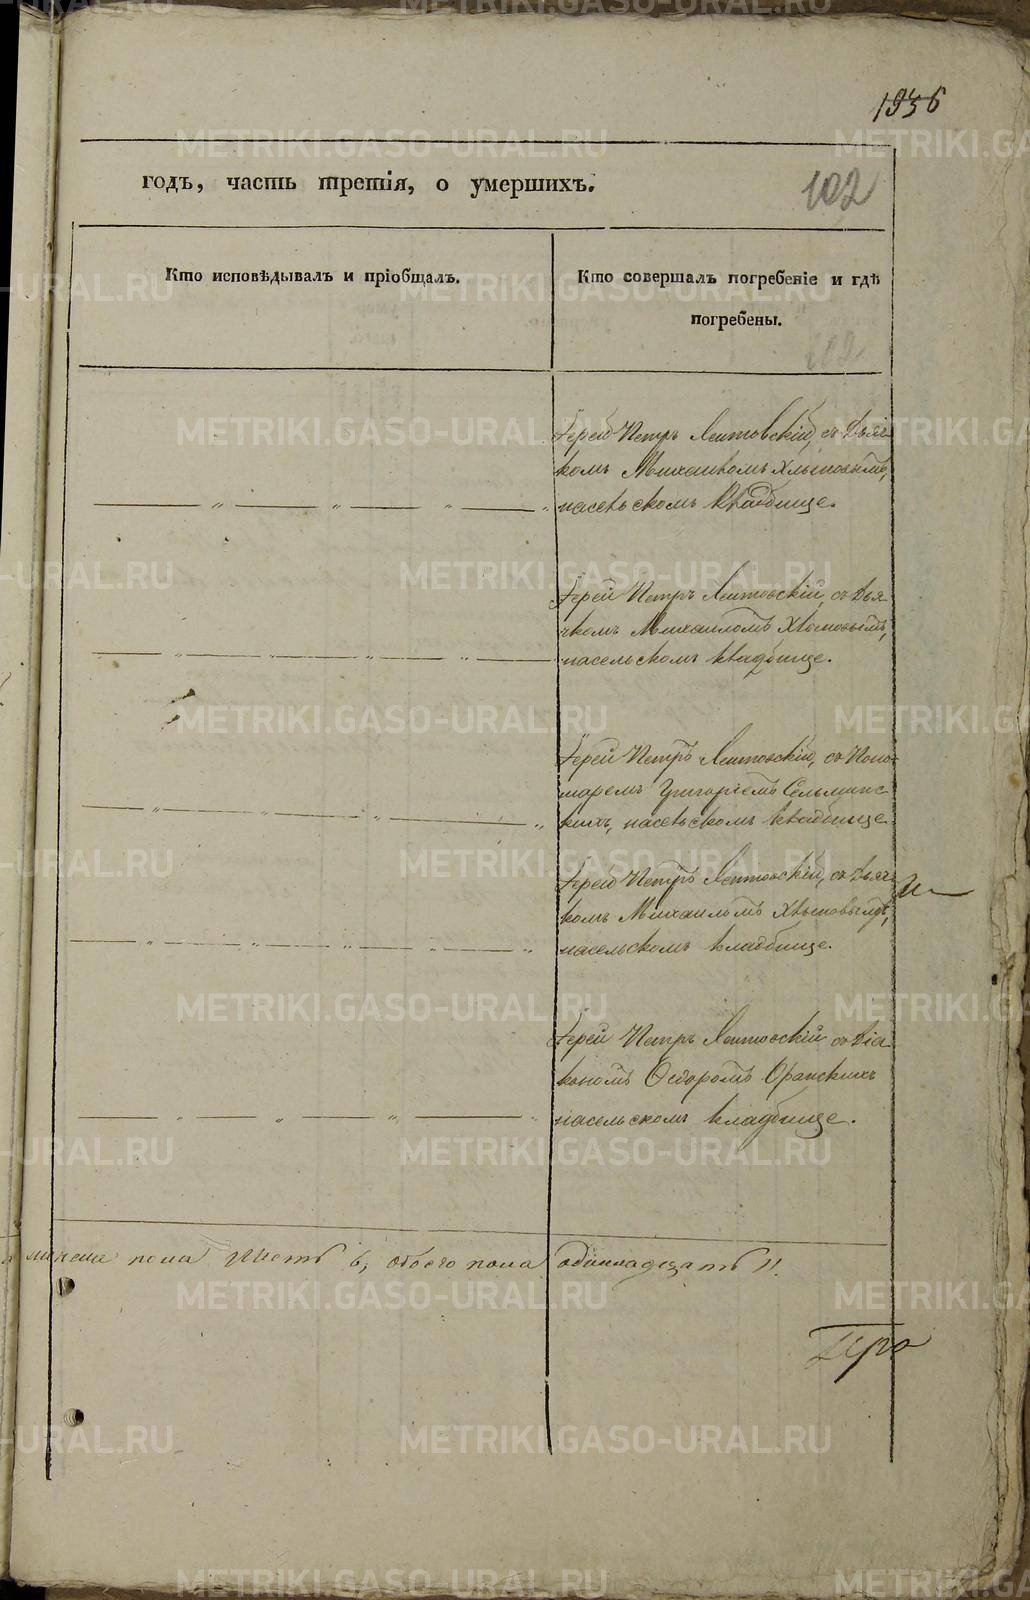 1956
годъ, часть третія, о умершихъ.
102
Кто исповѣдывалъ и пріобщалъ.
Кто совершалъ погребеніе и гдѣ
погребены.
Іерей Петръ Лентовскій, съ Дьяч-
комъ Михаиломъ Хлыновымъ,
насельскомъ кладбище.
Іерей Петръ Лентовскій, съ Дья-
чкомъ Михаиломъ Хлыновымъ,
насельскомъ кладбище.
Іерей Петръ Лентовскій, съ Поно-
маремъ Григоріемъ
насельскомъ кладбище
Іерей Петръ Лентовскій, съ Дьяч-
комъ Михаиломъ Хлыновымъ,
насельскомъ кладбище.
Іерей Петръ Лентовскій съ Діа
кономъ Ѳедоромъ
насельскомъ кладбище.
пола шесть 6, обоего пола одиннадцать 11.
METRIKI.GASO-URAL.RU